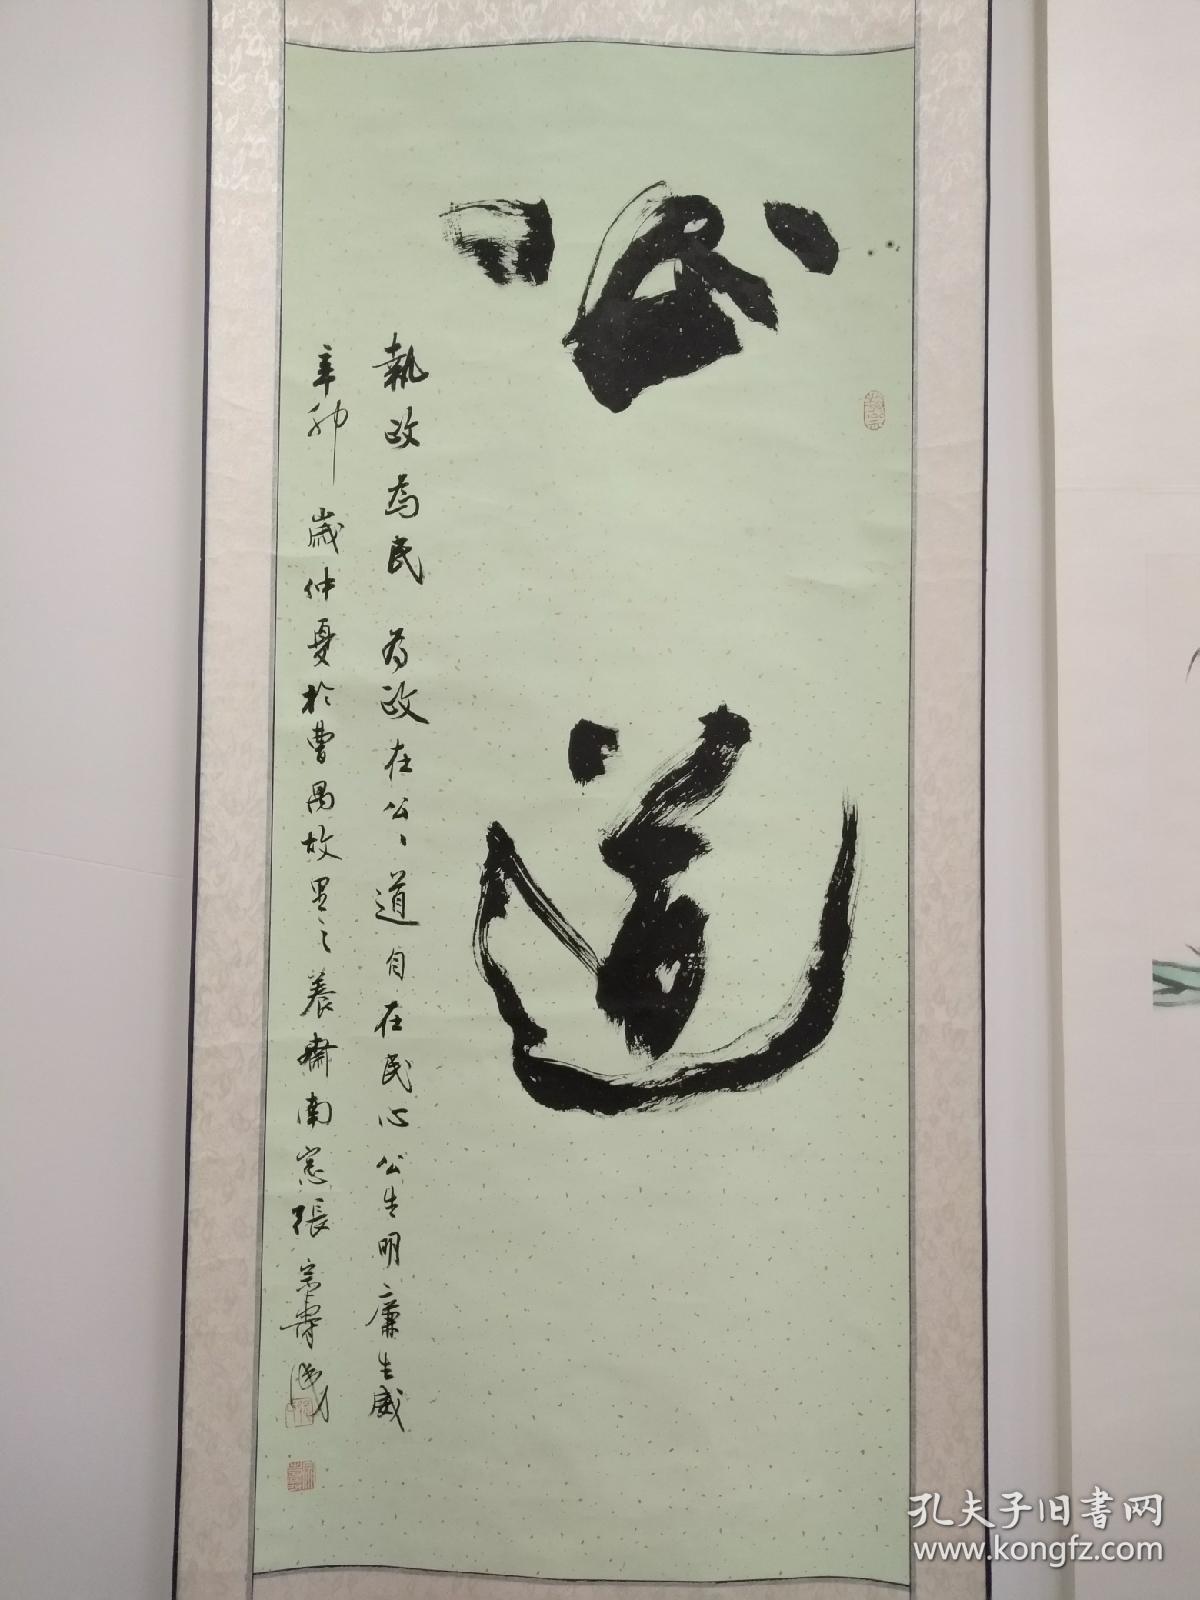 公道
執政為民 為政在公、道自在民心公生明廉生威
辛卯歲仲夏於曹禺故里之養齋南窓張宗壽
孔夫子旧书网
www.kongfz.com